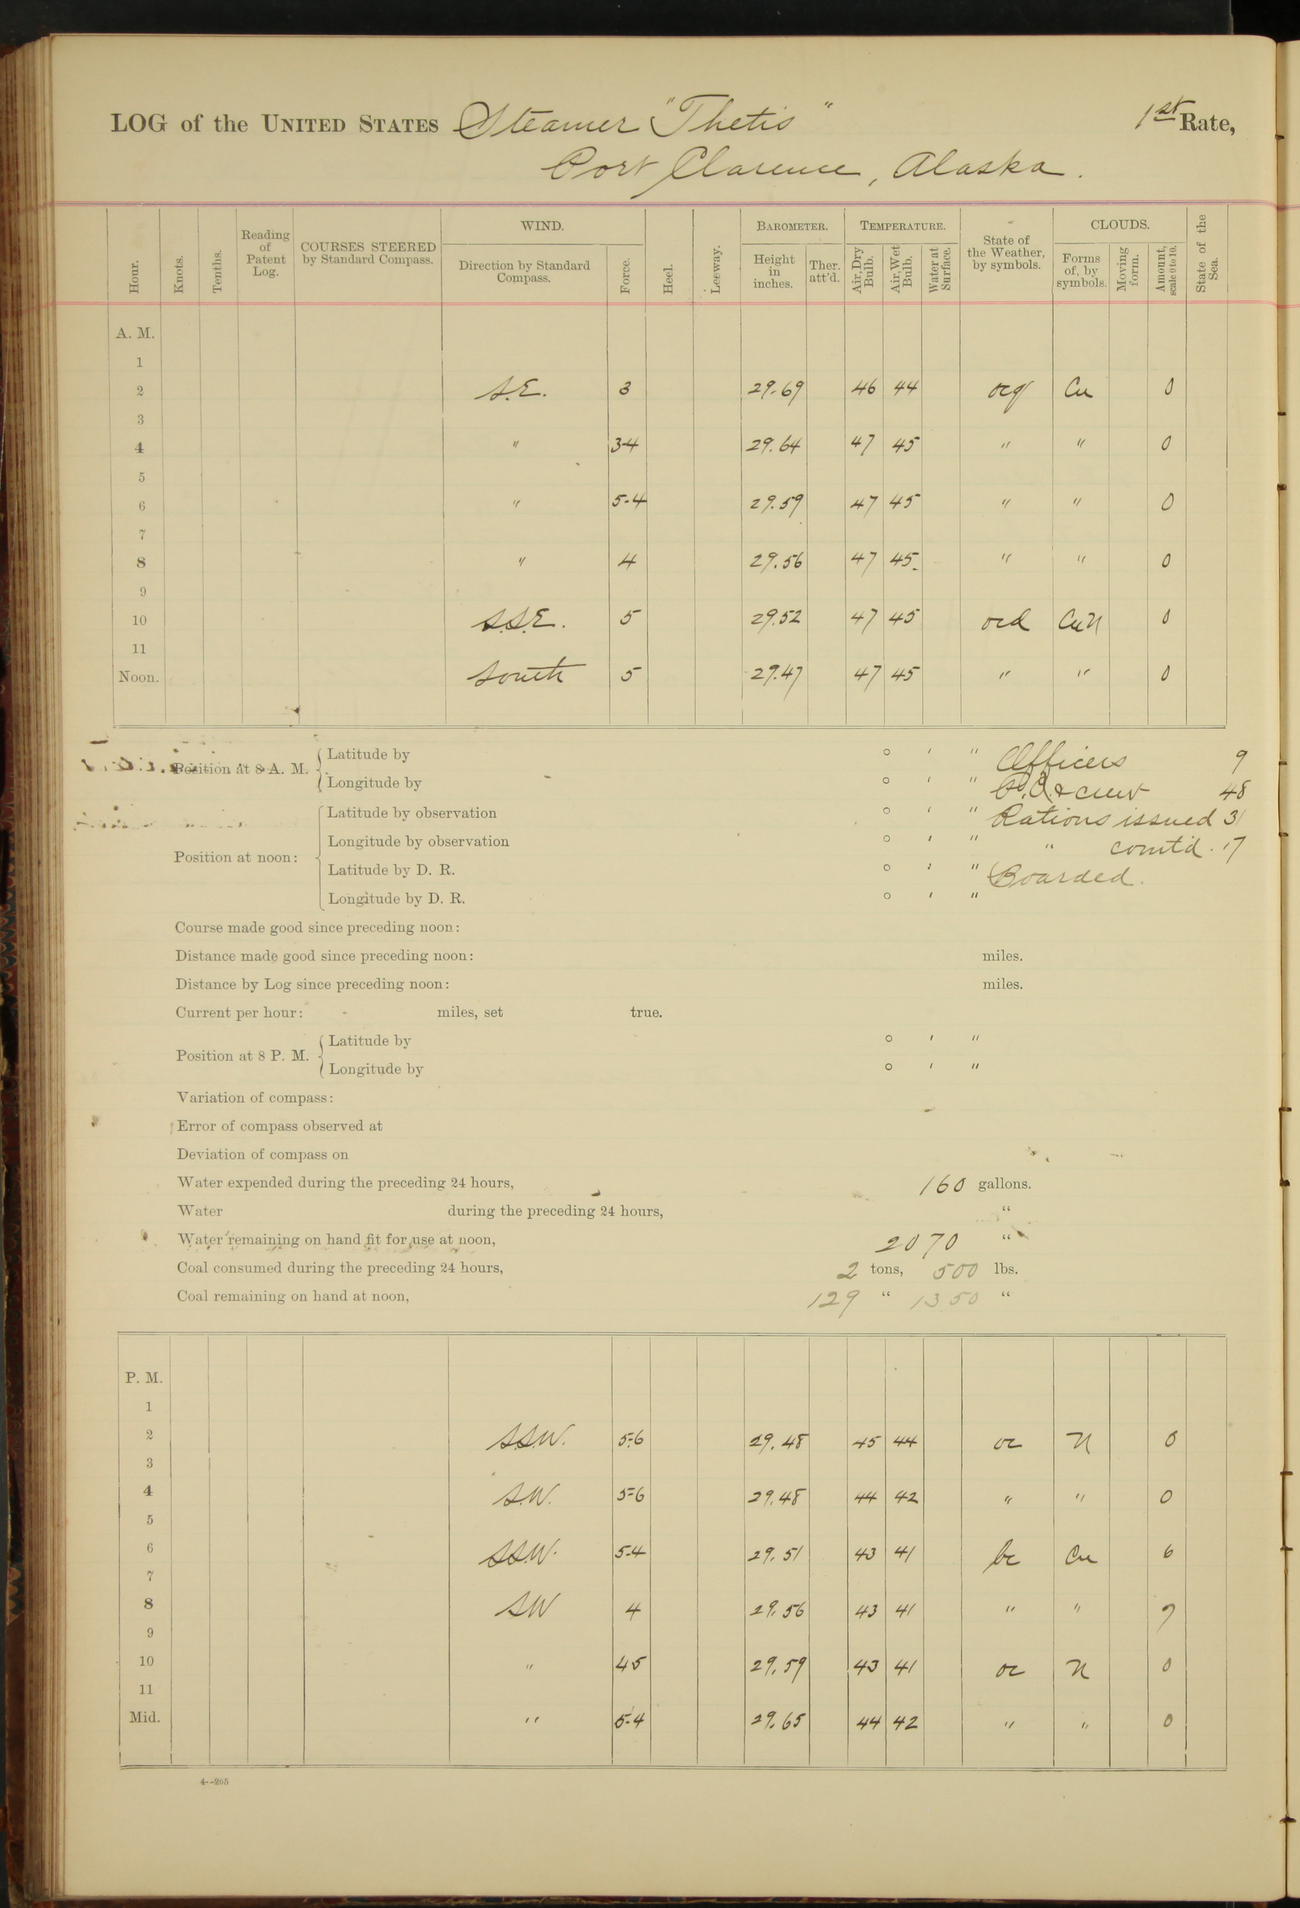 LOG of the UNITED STATES Steamer "Thetis" 1st Rate,
Port Clarence, Alaska.
Hour. Knots. Tenths. Reading of Patent Log. COURSES STEERED by Standard Compass. WIND. Direction by Standard Compass. Force. Heel. Leeway. BAROMETER. Height in inches. Ther. att'd. TEMPERATURE. Air, Dry Bulb. Air, Wet Bulb. Water at Surface. State of the Weather, by symbols. CLOUDS. Forms of, by symbols. Moving form. Amount, scale 0 to 10. State of the Sea.
A. M.
1
2 S.E. 3 29.69 46 44 ocq Cu 0
3
4 " 3-4 29.64 47 45 " " 0
5
6 " 5-4 29.59 47 45 " " 0
7
8 " 4 29.56 47 45 " " 0
9
10 S.S.E. 5 29.52 47 45 ocd CuN 0
11
Noon. South 5 29.47 47 45 " " 0
Position at 8 A. M. Latitude by ° ' " Officers 9
Longitude by ° ' " P.O. & crew 48
Latitude by observation ° ' " Rations issued 31
Longitude by observation ° ' " " comt'd. 17
Position at noon:
Latitude by D. R. ° ' " Boarded.
Longitude by D. R. ° ' "
Course made good since preceding noon:
Distance made good since preceding noon: miles.
Distance by Log since preceding noon: miles.
Current per hour: miles, set true.
Position at 8 P. M. Latitude by ° ' "
Longitude by ° ' "
Variation of compass:
Error of compass observed at
Deviation of compass on
Water expended during the preceding 24 hours, 160 gallons.
Water during the preceding 24 hours, "
Water remaining on hand fit for use at noon, 2070 "
Coal consumed during the preceding 24 hours, 2 tons, 500 lbs.
Coal remaining on hand at noon, 129 " 1350 "
P. M.
1
2 S.S.W. 5-6 29.48 45 44 oc N 0
3
4 S.W. 5-6 29.48 44 42 " " 0
5
6 SSW. 5-4 29.51 43 41 bc Cu 6
7
8 SW 4 29.56 43 41 " " 7
9
10 " 45 29.59 43 41 oc N 0
11
Mid. " 5-4 29.65 44 42 " " 0
4--205